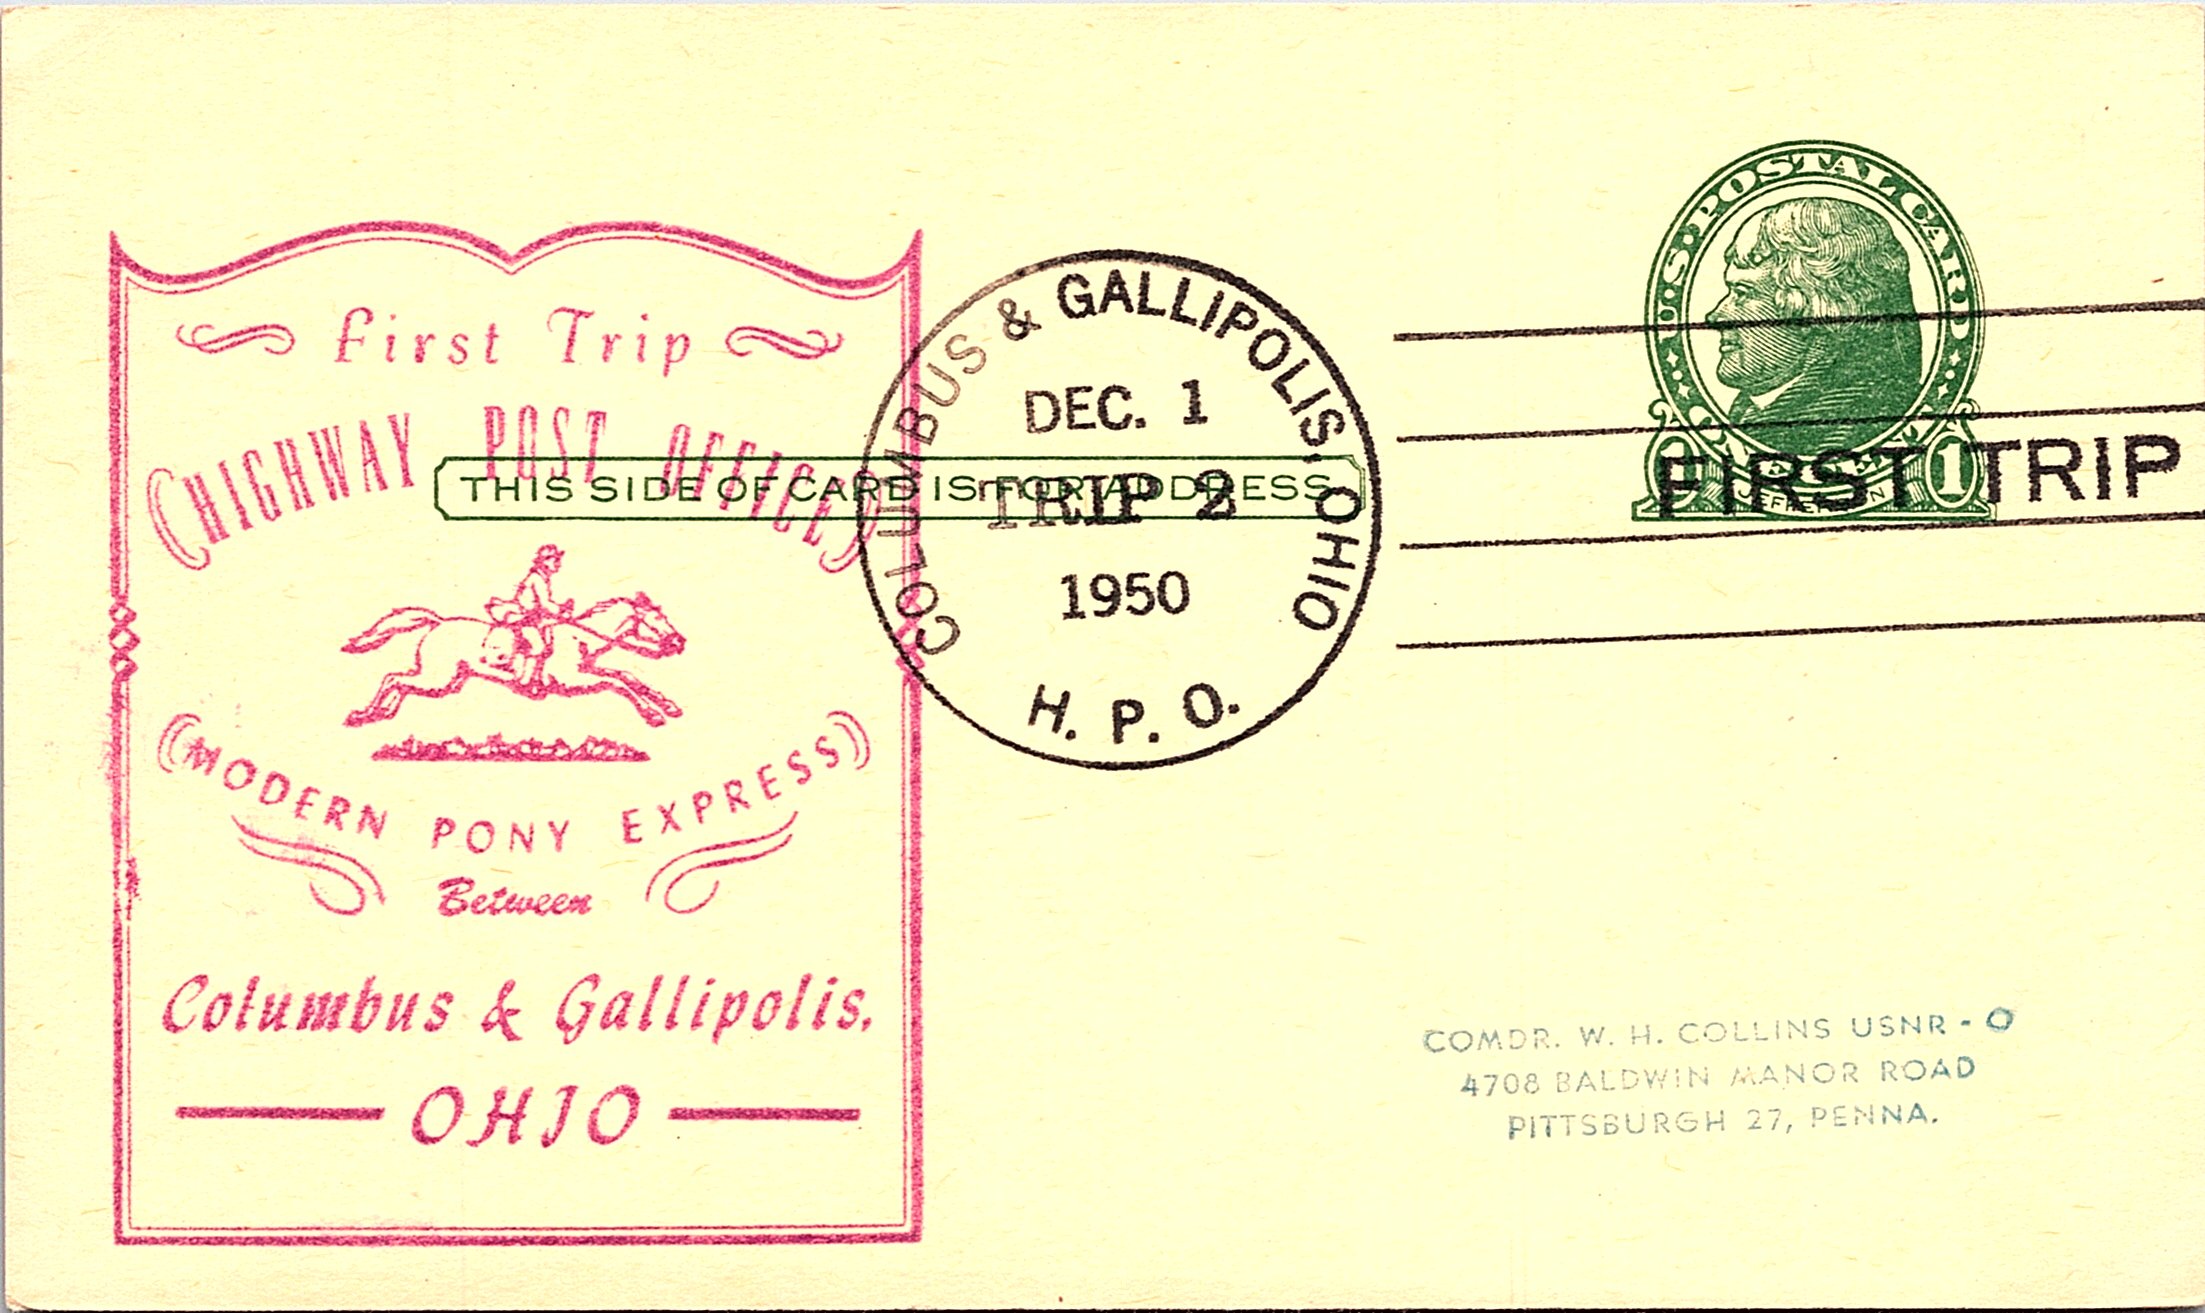 First Trip
HIGHWAY POST OFFICE
MODERN PONY EXPRESS
Between
Columbus & Gallipolis.
OHIO
THIS SIDE OF CARD IS FOR ADDRESS
COLUMBUS & GALLIPOLIS, OHIO
DEC. 1
TRIP 2
1950
H. P. O.
U.S. POSTAL CARD
1 1
JEFFERSON
FIRST TRIP
COMDR. W. H. COLLINS USNR - O
4708 BALDWIN MANOR ROAD
PITTSBURGH 27, PENNA.